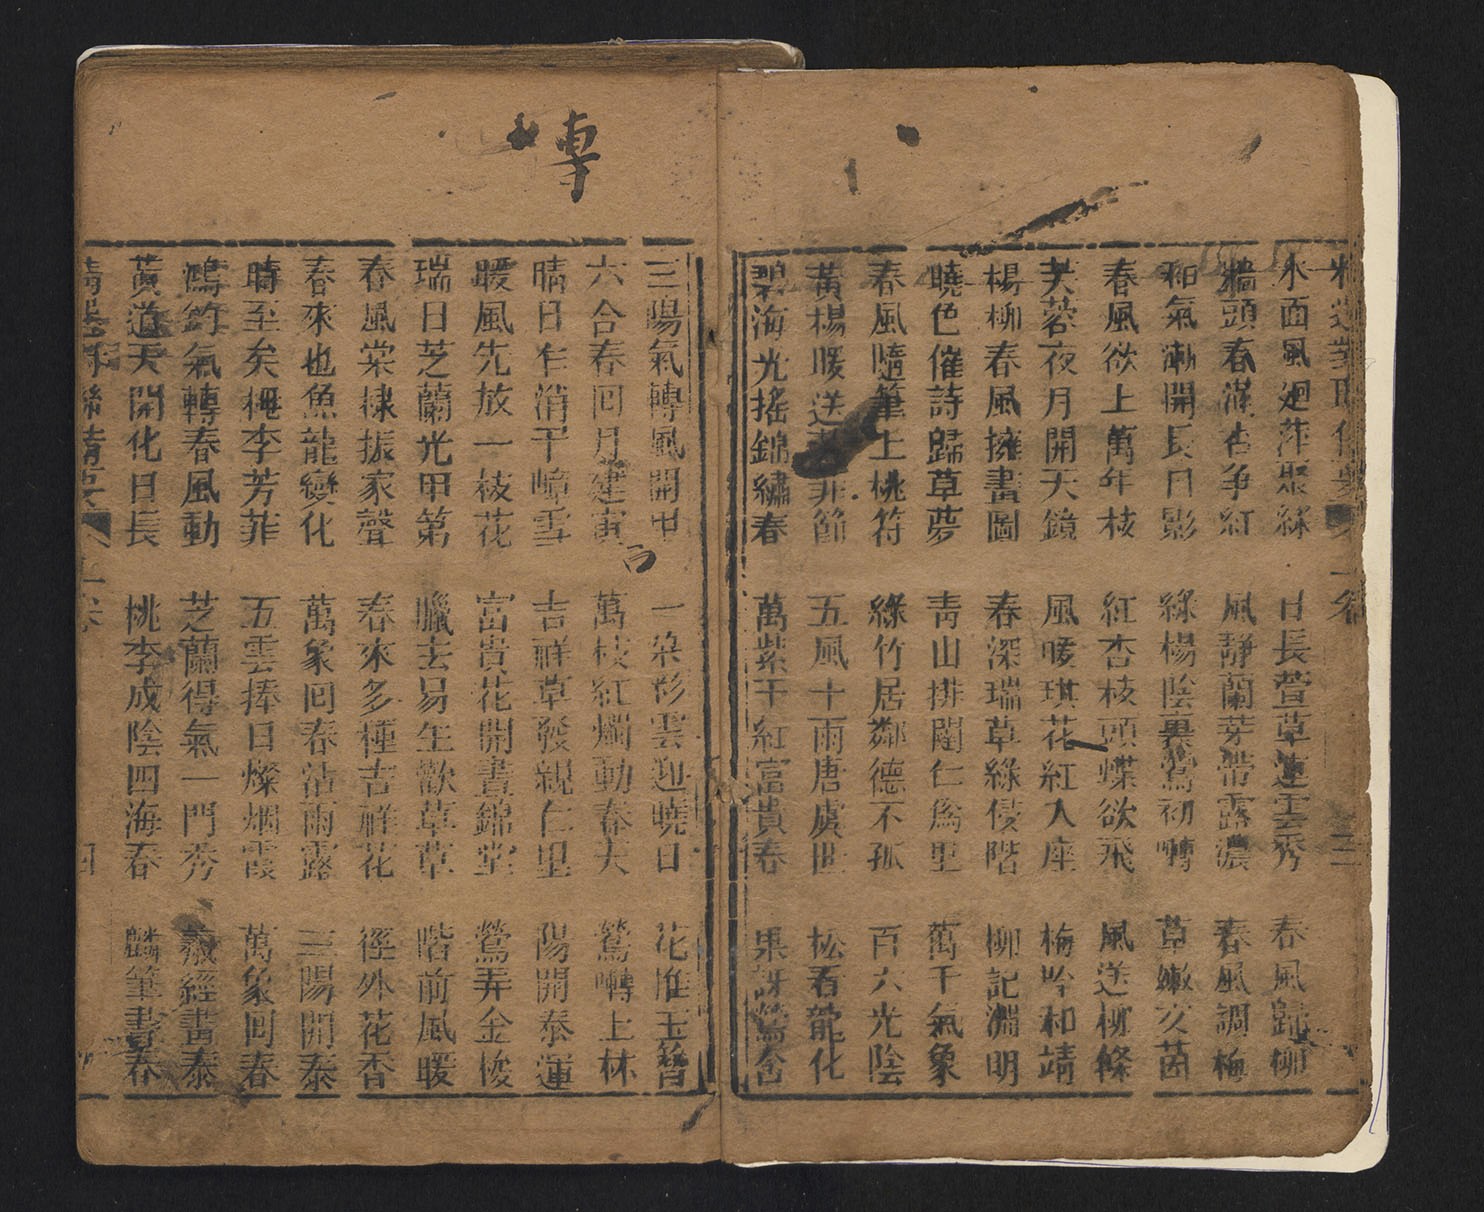 三
水面風廻萍聚綠 日長萱草連雲秀 春風歸柳
牆頭春滿杏爭紅 風靜蘭芽帶露濃 春風調梅
和氣漸開長日影 綠楊陰裏鶯初囀 草嫩交茵
春風欲上萬年枝 紅杏枝頭蝶欲飛 風送柳條
芙蓉夜月開天鏡 風暖琪花紅入座 梅吟和靖
楊柳春風擁畫圖 春深瑞草綠侵階 柳記淵明
曉色催詩歸草夢 青山排闥仁爲里 萬千氣象
春風隨筆上桃符 綠竹居鄰德不孤 百六光陰
黃楊暖送節 五風十雨唐虞世 松看龍化
碧海光搖錦繡春 萬紫千紅富貴春 果訝鶯含
傳
三陽氣轉風開世 一朶彩雲迎曉日 花堆玉簪
六合春回月建寅 萬枝紅燭動春天 鶯囀上林
晴日乍消千嶂雪 吉祥草發親仁里 陽開泰運
暖風先放一枝花 富貴花開晝錦堂 鶯弄金梭
瑞日芝蘭光甲第 臘去易生歡草草 階前風暖
春風棠棣振家聲 春來多種吉祥花 徑外花香
春來也魚龍變化 萬象回春沾雨露 三陽開泰
時至矣桃李芳菲 五雲捧日燦烟霞 萬象回春
鴻鈞氣轉春風動 芝蘭得氣一門秀 羲經畫泰
黃道天開化日長 桃李成陰四海春 麟筆書春
四